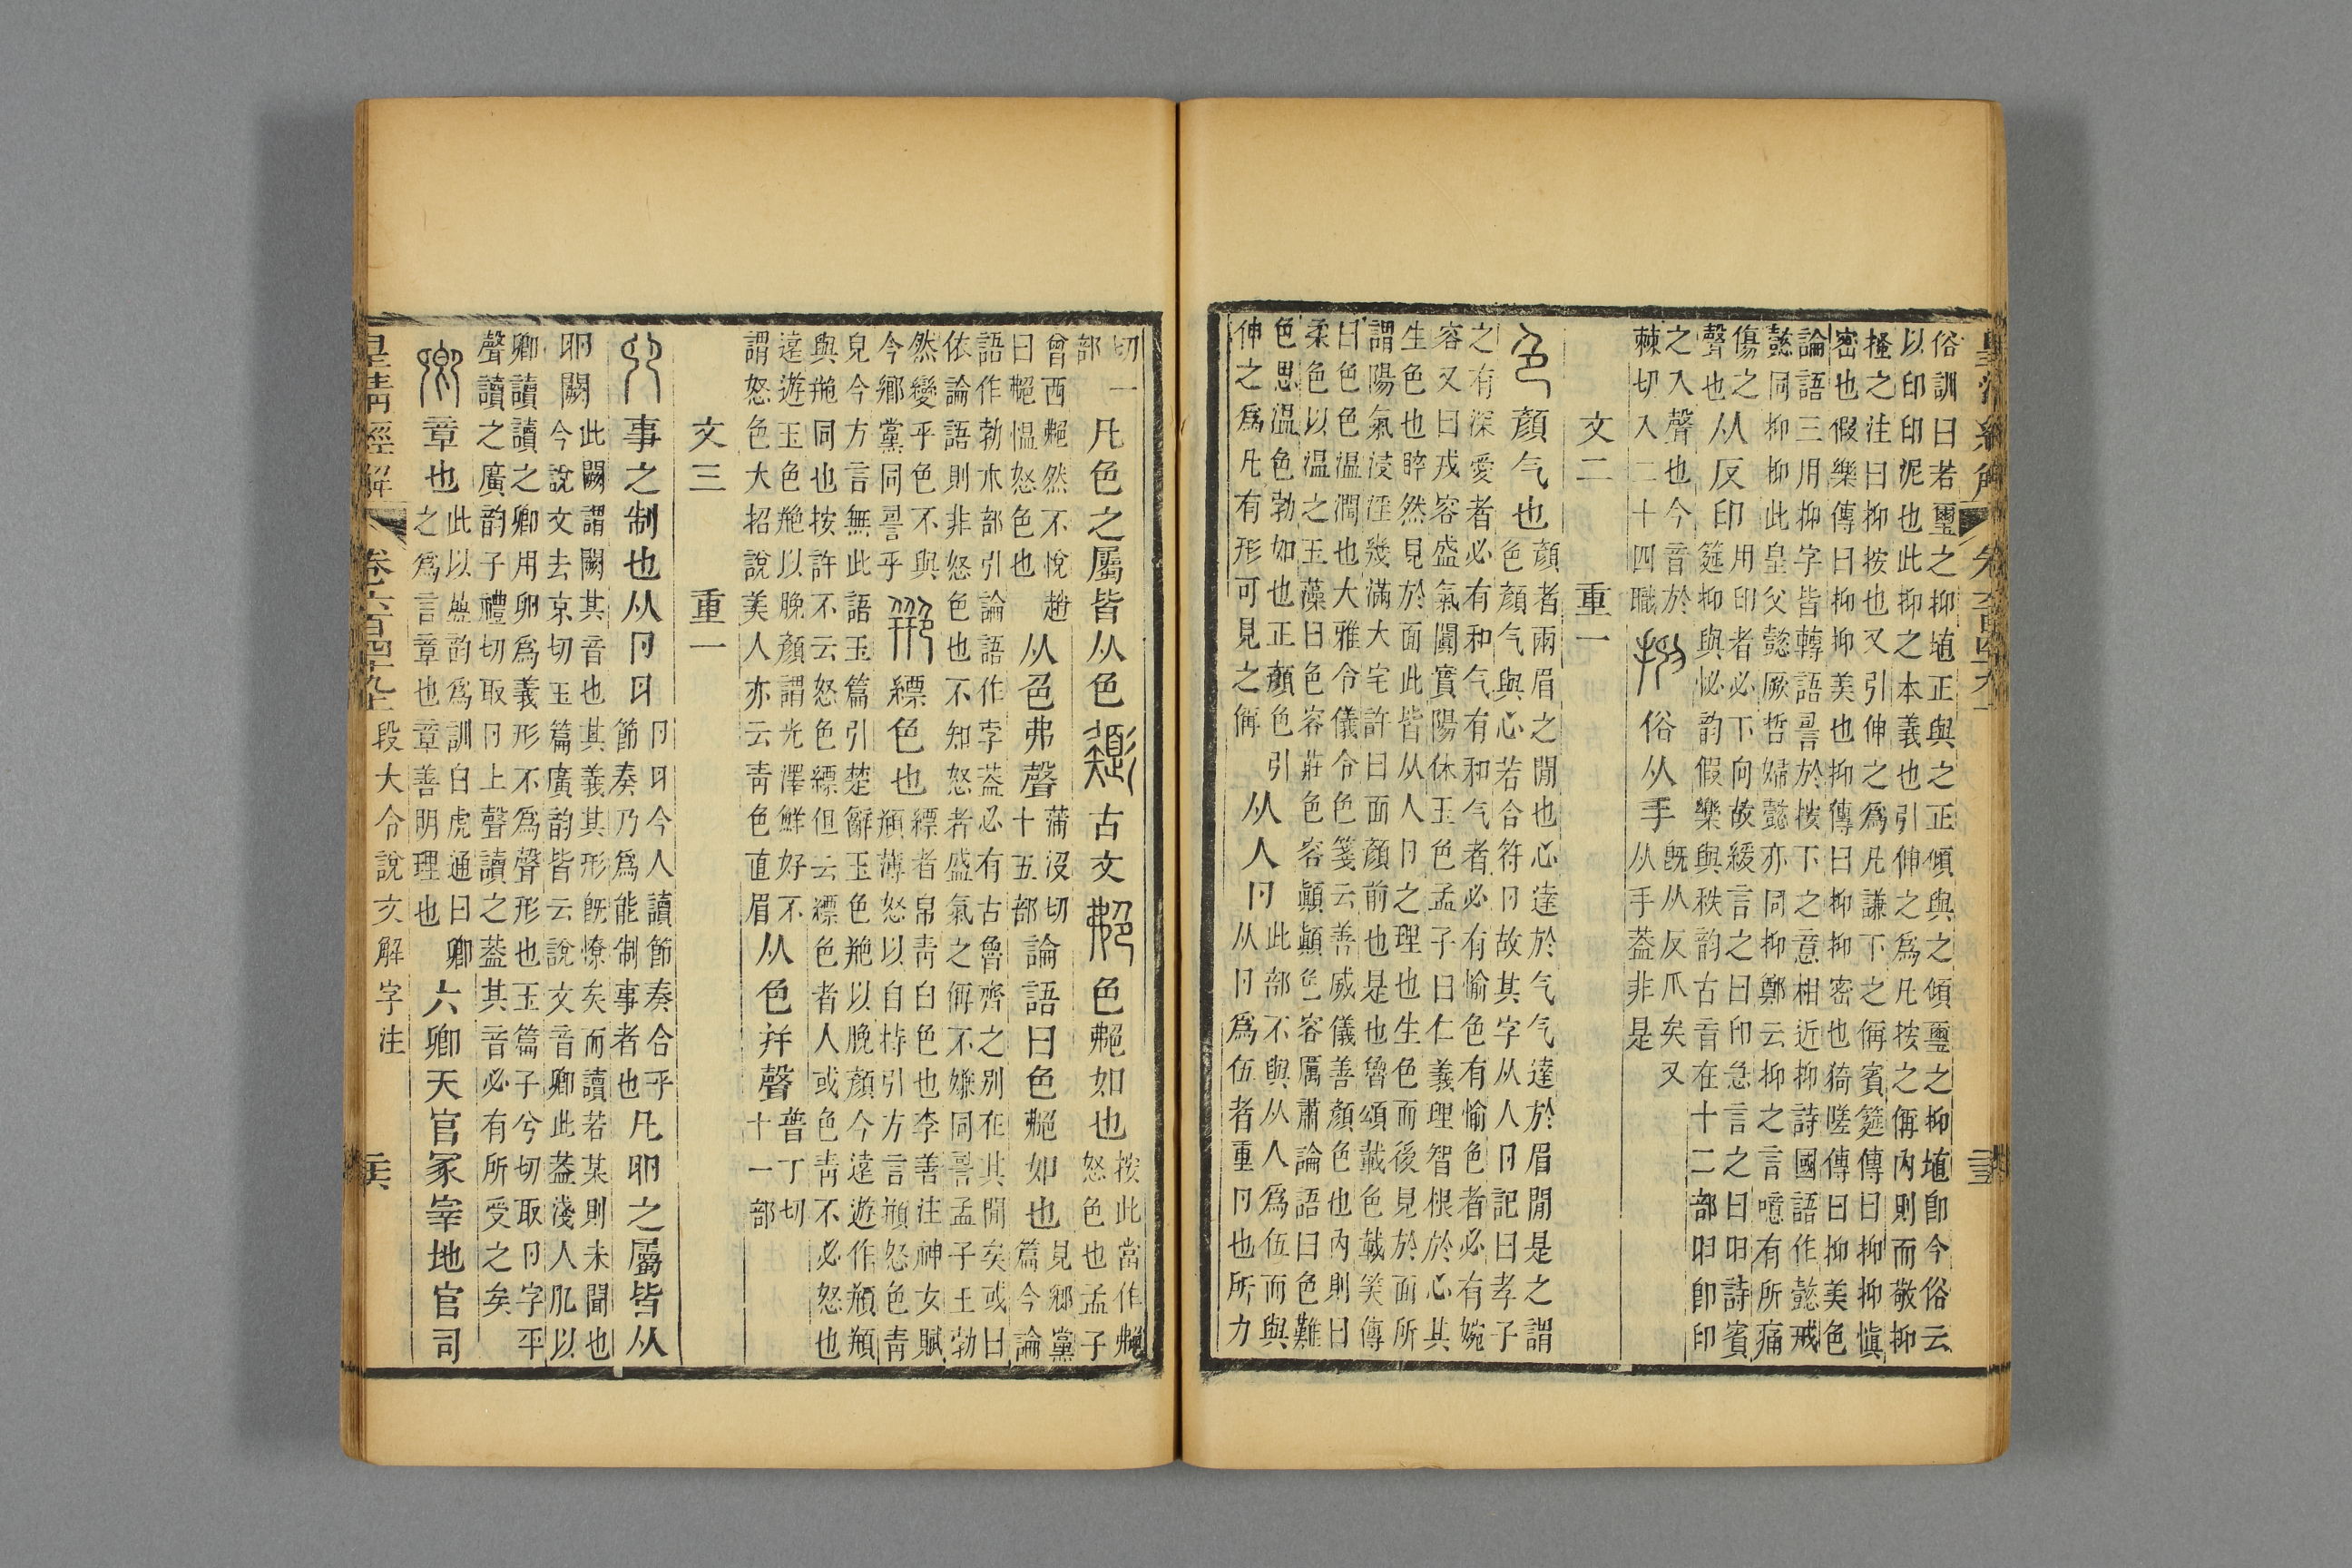 俗訓曰若璽之抑埴正與之正傾與之傾璽之抑埴卽今俗云
以印印泥也此抑之本義也引伸之爲凡按之偁內則而敬抑
搔之注曰抑按也又引伸之爲凡謙下之偁賓筵傳曰抑抑愼
密也假樂傳曰抑抑美也抑傳曰抑抑密也猗嗟傳曰抑美色
論語三用抑字皆轉語䛐於按下之意相近抑詩國語作懿戒
懿同抑抑此皇父懿厥哲婦懿亦同抑鄭云抑之言噫有所痛
傷之
聲也
从反印
用印者必下向故緩言之曰印急言之曰𢑏詩賓
筵抑與怭韵假樂與秩韵古音在十二部𢑏卽印
之入聲也今音於
棘切入二十四職
俗从手
旣从反爪矣又
从手葢非是
文二　重一
顏气也
顏者兩眉之閒也心達於气气達於眉閒是之謂
色顏气與心若合符卪故其字从人卪記曰孝子
之有深愛者必有和气有和气者必有愉色有愉色者必有婉
容又曰戎容盛氣闐實陽休玉色孟子曰仁義理智根於心其
生色也睟然見於面此皆从人卪之理也生色而後見於面所
謂陽氣浸淫幾滿大宅許曰面顏前也是也魯頌載色載笑傳
曰色溫潤也大雅令儀令色箋云善威儀善顏色也內則曰
柔色以溫之玉藻曰色容莊色容顚顚色容厲肅論語曰色難
色思溫色勃如也正顏色引
伸之爲凡有形可見之偁
从人卪
此部不與从人爲伍而與
从卪爲伍者重卪也所力
切一
部
凡色之屬皆从色
古文
色艴如也
按此當作艴
怒色也孟子
曾西艴然不悅趙
曰艴慍怒色也
从色弗聲
蒲沒切
十五部
論語曰色艴如也
見鄉黨
篇今論
語作勃𣎵部引論語作孛葢必有古魯齊之别在其閒矣或曰
依論語則非怒色也不知怒者盛氣之偁不嫌同䛐孟子王勃
然變乎色不與
今鄉黨同䛐乎
縹色也
縹者帛靑白色也李善注神女賦
頩薄怒以自持引方言頩怒色靑
皃今方言無此語玉篇引楚辭玉色艵以脕顏今遠遊作頩頩
與艵同也按許不云怒色縹但云縹色者人或色靑不必怒也
遠遊玉色艵以脕顏謂光澤鮮好不
謂怒色大招說美人亦云靑色直眉
从色幷聲
普丁切
十一部
文三　重一
事之制也从卪𠨎
卪𠨎今人讀節奏合乎
節奏乃爲能制事者也
凡卯之屬皆从
卯闕
此闕謂闕其音也其義其形旣憭矣而讀若某則未聞也
今說文去京切玉篇廣韵皆云說文音卿此葢淺人肊以
卿讀讀之卿用卯爲義形不爲聲形也玉篇子兮切取卪字平
聲讀之廣韵子禮切取卪上聲讀之葢其音必有所受之矣
章也
此以疊韵爲訓白虎通曰卿
之爲言章也章善明理也
六卿天官冢宰地官司
皇淸經解 卷六百四十九上 段大令說文解字注